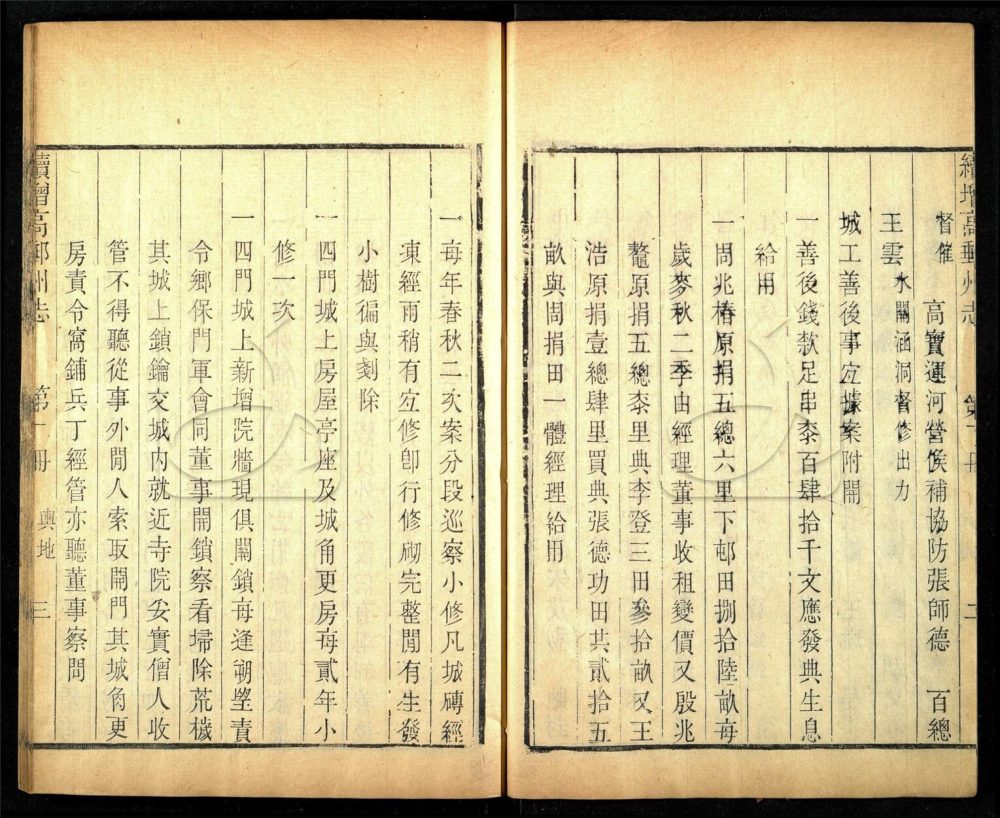 續增高郵州志 第一冊 二
督催 高寶運河營俟補協防張師德 百總
王雲 水關涵洞督修出力
城工善後事宜據案附開
一善後錢款足串柒百肆拾千文應發典生息
給用
一周兆椿原捐五總六里下邨田捌拾陸畝每
歲麥秋二季由經理董事收租變價又殷兆
鰲原捐五總柒里典李登三田參拾畝又王
浩原捐壹總肆里買典張德功田共貳拾五
畝與周捐田一體經理給用
一每年春秋二次案分段巡察小修凡城磚經
凍經雨稍有宜修卽行修砌完整閒有生發
小樹徧與剗除
一四門城上房屋亭座及城角更房每貳年小
修一次
一四門城上新增院牆現俱關鎖每逢朔朢責
令鄉保門軍會同董事開鎖察看埽除荒穢
其城上鎖鑰交城內就近寺院妥實僧人收
管不得聽從事外閒人索取開門其城角更
房責令窩鋪兵丁經管亦聽董事察問
續增高郵州志 第一冊 輿地 三